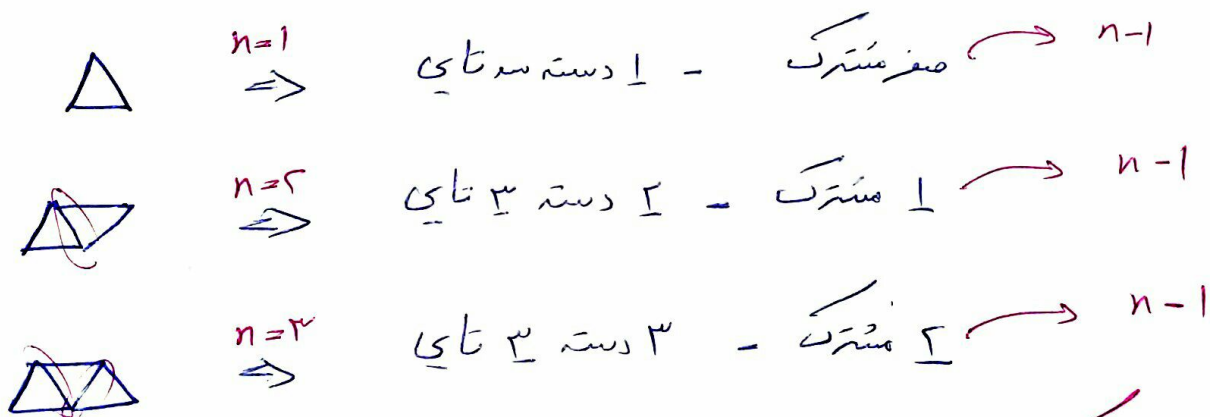 n=1 ⇒ ۱ دسته سه تایی - صفر مشترک → n-1
n=۲ ⇒ ۲ دسته ۳ تایی - ۱ مشترک → n-1
n=۳ ⇒ ۳ دسته ۳ تایی - ۲ مشترک → n-1